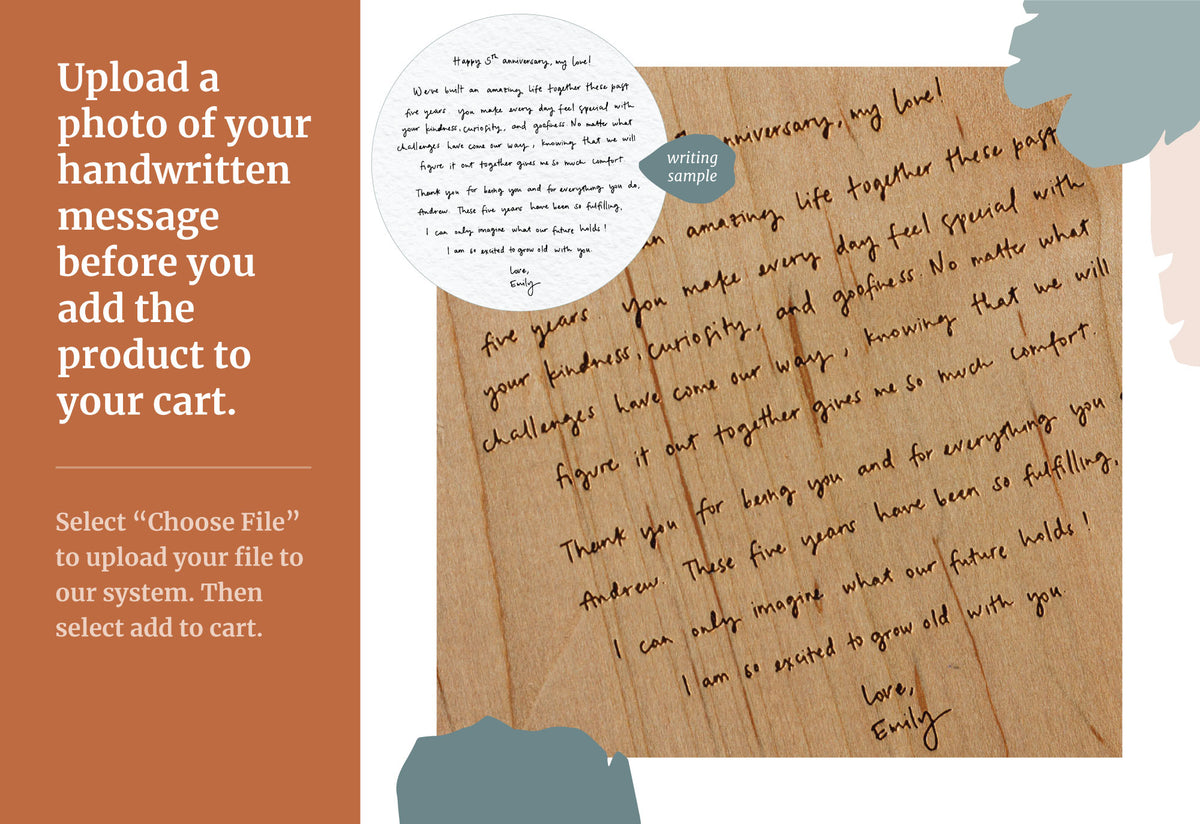 Upload a
photo of your
handwritten
message
before you
add the
product to
your cart.
Select “Choose File”
to upload your file to
our system. Then
select add to cart.
Happy 5th anniversary, my love!
We've built an amazing life together these past
five years. you make every day feel special with
your kindness, curiosity, and goofiness. No matter what
challenges have come our way, knowing that we will
figure it out together gives me so much comfort.
Thank you for being you and for everything you do,
Andrew. These five years have been so fulfilling,
I can only imagine what our future holds!
I am so excited to grow old with you.
Love,
Emily
writing
sample
anniversary, my love!
an amazing life together these past
five years you make every day feel special with
your kindness, curiosity, and goofiness. No matter what
challenges have come our way, knowing that we will
figure it out together gives me so much comfort.
Thank you for being you and for everything you
Andrew. These five years have been so fulfilling,
I can only imagine what our future holds!
I am so excited to grow old with you.
Love,
Emily